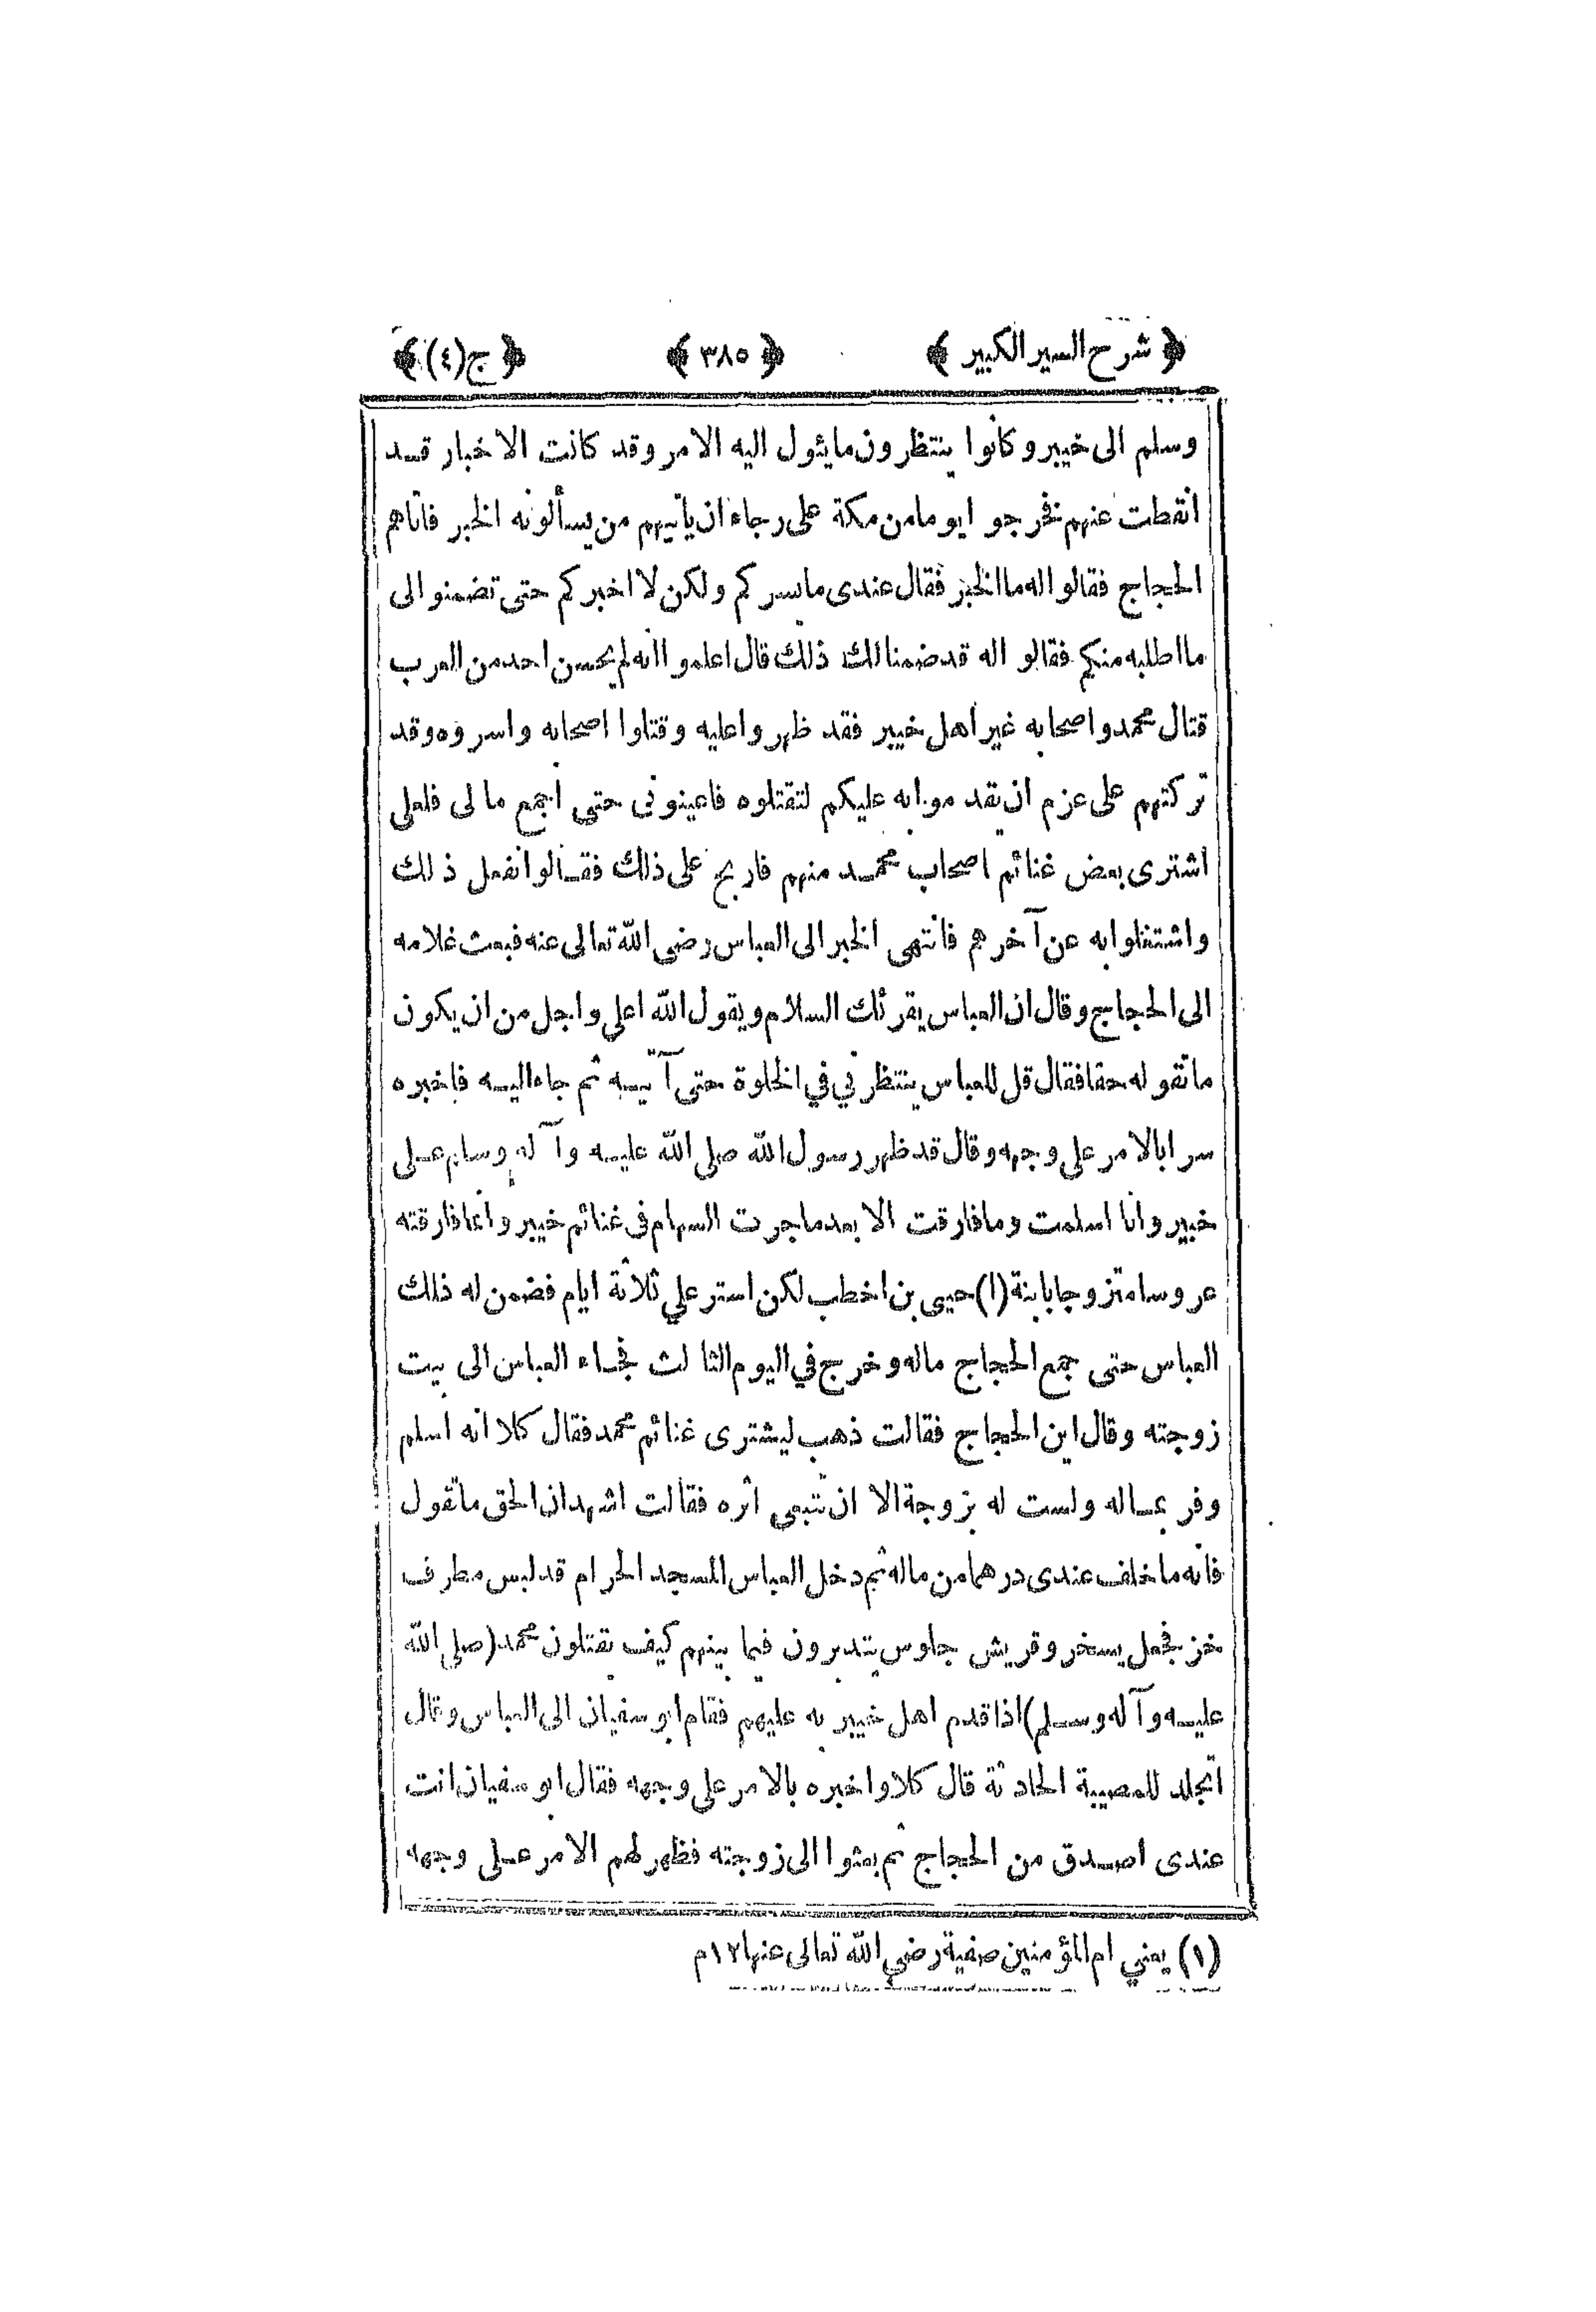 ﴿ شرح السير الكبير ﴾ ﴿ ٣٨٥ ﴾ ﴿ ج (٤) ﴾
وسلم الى خيبر وكانوا ينتظرون ما يئول اليه الامر وقد كانت الاخبار قد
انقطت عنهم فخرجوا يوما من مكة على رجاء ان يأتيهم من يسألونه الخبر فاتاهم
الحجاج فقالوا له ما الخبر فقال عندى ما يسركم ولكن لا اخبركم حتى تضمنوا لى
ما اطلبه منكم فقالوا له قد ضمنا لك ذلك قال اعلموا انه لم يحسن احد من العرب
قتال محمد واصحابه غير اهل خيبر فقد ظهروا عليه وقتلوا اصحابه واسروه وقد
تركتهم على عزم ان يقدموا به عليكم لتقتلوه فاعينونى حتى اجمع مالى فلعلى
اشترى بعض غنائم اصحاب محمد منهم فاربح على ذلك فقالوا نفعل ذلك
واشتغلوا به عن آخرهم فانتهى الخبر الى العباس رضى الله تعالى عنه فبعث غلامه
الى الحجاج وقال ان العباس يقرئك السلام ويقول الله اعلى واجل من ان يكون
ما تقوله حقا فقال قل للعباس ينتظرني في الخلوة حتى آتيه ثم جاء اليه فاخبره
سرا بالامر على وجهه وقال قد ظهر رسول الله صلى الله عليه وآله وسلم على
خيبر وانا اسلمت وما فارقت الا بعد ما جرت السهام فى غنائم خيبر وانما فارقته
عروسا متزوجا بابنة (١) حيى بن اخطب لكن استر علي ثلاثة ايام فضمن له ذلك
العباس حتى جمع الحجاج ماله وخرج في اليوم الثالث فجاء العباس الى بيت
زوجته وقال اين الحجاج فقالت ذهب ليشترى غنائم محمد فقال كلا انه اسلم
وفر بماله ولست له بزوجة الا ان تتبعى اثره فقالت اشهد ان الحق ما تقول
فانه ما خلف عندى درهما من ماله ثم دخل العباس المسجد الحرام قد لبس مطرف
خز فجعل يسخر وقريش جلوس يتدبرون فيما بينهم كيف يقتلون محمد (صلى الله
عليه وآله وسلم) اذا قدم اهل خيبر به عليهم فقام ابو سفيان الى العباس وقال
اتجلد للمصيبة الحادثة قال كلا واخبره بالامر على وجهه فقال ابو سفيان انت
عندى اصدق من الحجاج ثم بعثوا الى زوجته فظهر لهم الامر على وجهه
(١) يعني ام المؤمنين صفية رضي الله تعالى عنها ١٢ م